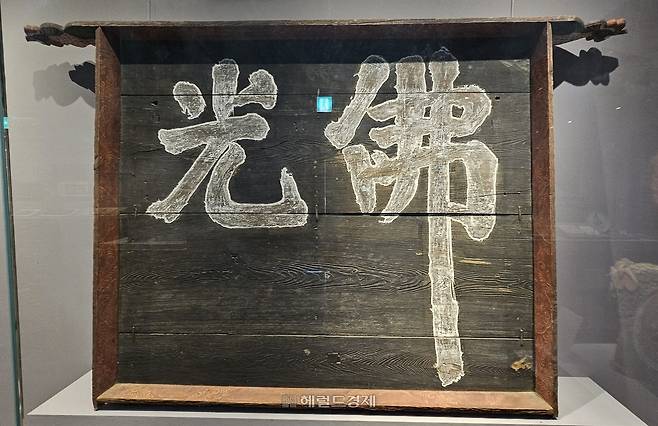 佛光
헤럴드경제